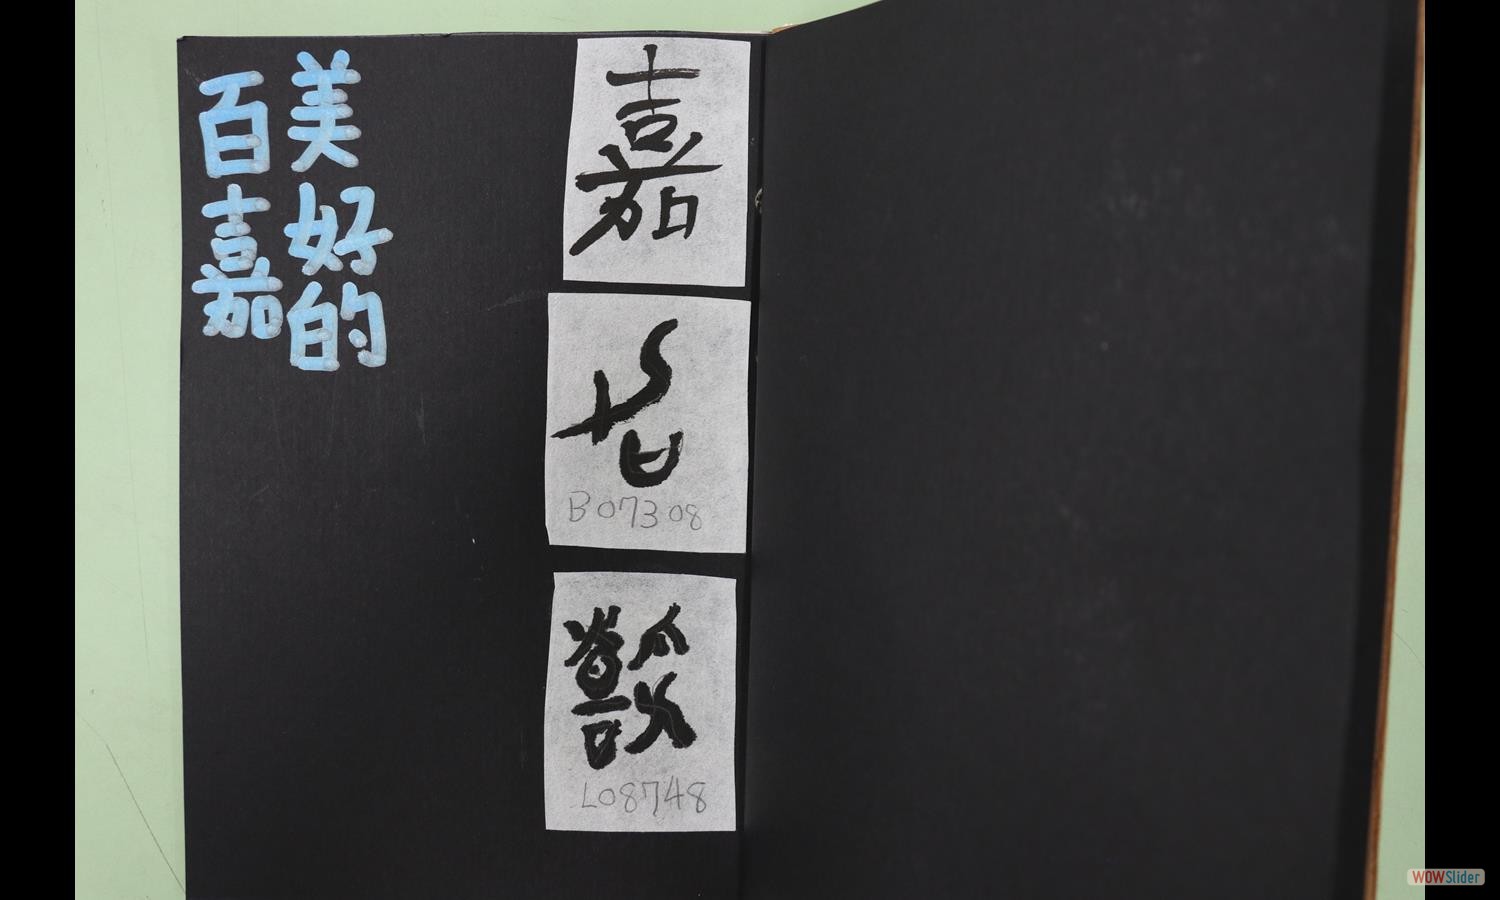 美好的
百嘉
嘉
B07308
L08748
WOWSlider